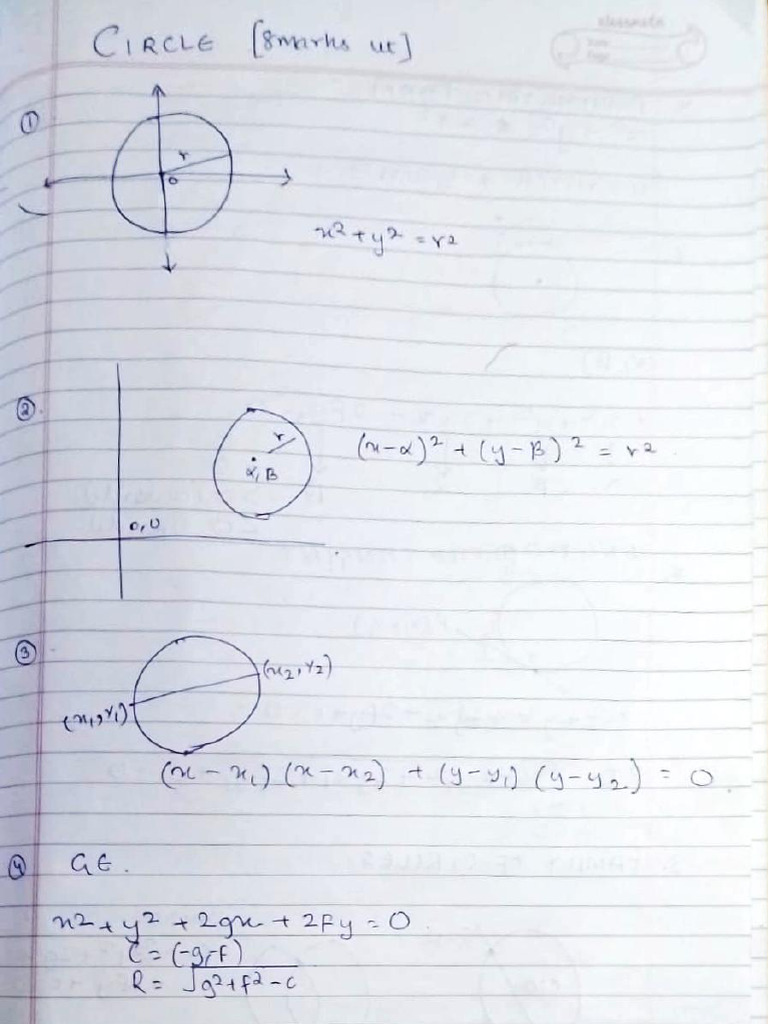 classmate
CIRCLE [8 marks wt]
①
r
0
x² + y² = r²
②
r
α, β
(x-α)² + (y-β)² = r²
0,0
③
(x₂, y₂)
(x₁, y₁)
(x - x₁) (x - x₂) + (y - y₁) (y - y₂) = 0
④ GE.
x² + y² + 2gx + 2fy = 0
C = (-g, -f)
R = √g² + f² - c